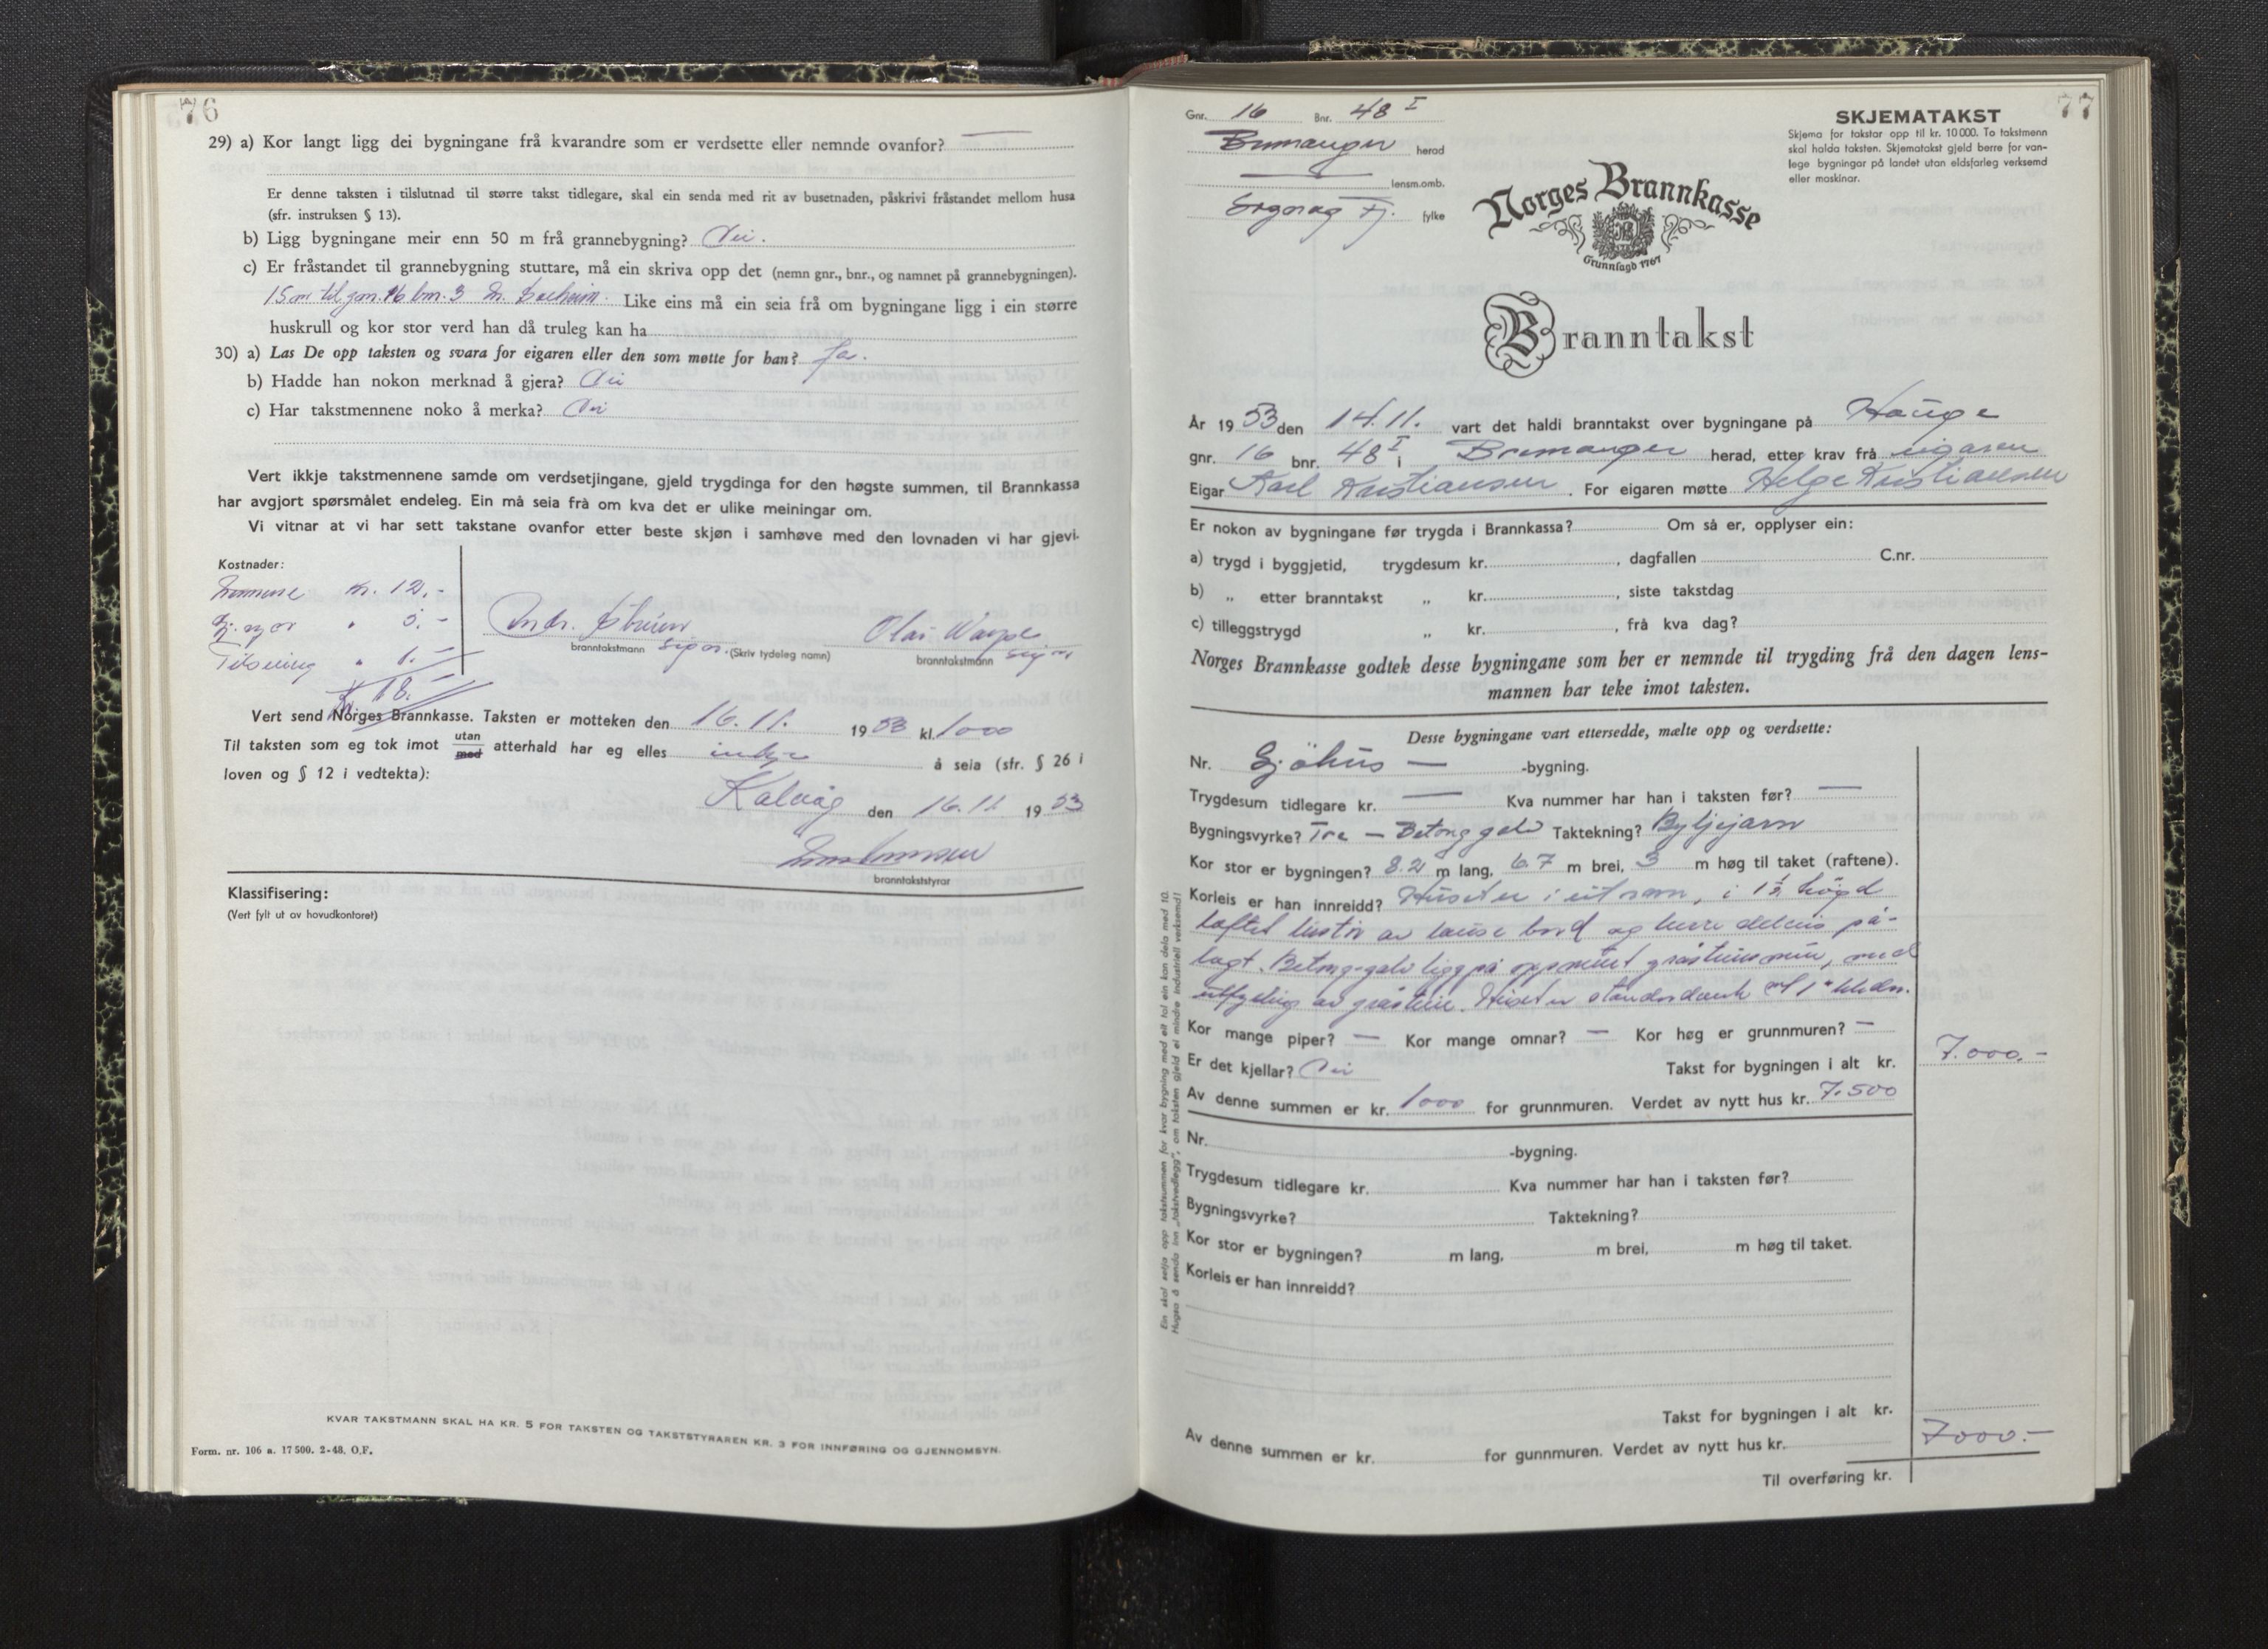 76
29) a) Kor langt ligg dei bygningane frå kvarandre som er verdsette eller nemnde ovanfor? —
Er denne taksten i tilslutnad til større takst tidlegare, skal ein senda med rit av busetnaden, påskrivi fråstandet mellom husa
(sfr. instruksen § 13).
b) Ligg bygningane meir enn 50 m frå grannebygning? Nei.
c) Er fråstandet til grannebygning stuttare, må ein skriva opp det (nemn gnr., bnr., og namnet på grannebygningen).
15 m til gnr. 16 bnr. 3 Like eins må ein seia frå om bygningane ligg i ein større
huskrull og kor stor verd han då truleg kan ha
30) a) Las De opp taksten og svara for eigaren eller den som møtte for han? Ja.
b) Hadde han nokon merknad å gjera? Nei
c) Har takstmennene noko å merka? Nei
Vert ikkje takstmennene samde om verdsetjingane, gjeld trygdinga for den høgste summen, til Brannkassa
har avgjort spørsmålet endeleg. Ein må seia frå om kva det er ulike meiningar om.
Vi vitnar at vi har sett takstane ovanfor etter beste skjøn i samhøve med den lovnaden vi har gjevi.
Kostnader:
kr. 12.-
" 5.-
" 1.-
Kr. 18.-
branntakstmann sign. (Skriv tydeleg namn)
Olai
branntakstmann sign
Vert send Norges Brannkasse. Taksten er motteken den 16.11. 1953 kl. 1000
Til taksten som eg tok imot utan med atterhald har eg elles intje å seia (sfr. § 26 i
loven og § 12 i vedtekta):
Kalvåg den 16.11 1953
branntakststyrar
Klassifisering:
(Vert fylt ut av hovudkontoret)
KVAR TAKSTMANN SKAL HA KR. 5 FOR TAKSTEN OG TAKSTSTYRAREN KR. 3 FOR INNFØRING OG GJENNOMSYN.
Form. nr. 106 a. 17 500. 2-48. O.F.
77
Gnr. 16 Bnr. 48 I
Bremanger herad
— lensm.omb.
Sogn og Fj. fylke
SKJEMATAKST
Skjema for takstar opp til kr. 10 000. To takstmenn
skal halda taksten. Skjematakst gjeld berre for van-
lege bygningar på landet utan eldsfarleg verksemd
eller maskinar.
Norges Brannkasse
Grunnlagd 1767
Branntakst
År 1953 den 14.11. vart det haldi branntakst over bygningane på Hauge
gnr. 16 bnr. 48 I i Bremanger herad, etter krav frå eigaren
Eigar Karl Kristiansen. For eigaren møtte Helge Kristiansen
Er nokon av bygningane før trygda i Brannkassa? Om så er, opplyser ein:
a) trygd i byggjetid, trygdesum kr. , dagfallen C.nr.
b) „ etter branntakst „ kr. , siste takstdag
c) tilleggstrygd „ kr. , frå kva dag?
Norges Brannkasse godtek desse bygningane som her er nemnde til trygding frå den dagen lens-
mannen har teke imot taksten.
Desse bygningane vart ettersedde, mælte opp og verdsette:
Nr. Sjöhus — -bygning.
Trygdesum tidlegare kr. — Kva nummer har han i taksten før? —
Bygningsvyrke? Tre — Betonggolv Taktekning? Bylgjejarn
Kor stor er bygningen? 8.2 m lang, 6.7 m brei, 3 m høg til taket (raftene).
Korleis er han innreidd? Huset er i eit rom, i 1½ högd
loftet av lause bord og berre delvis på-
lagt. Betong-golv ligg på oppmurt gråsteinsmur, med
utfyling av gråstein. Huset er m/ 1"
Kor mange piper? — Kor mange omnar? — Kor høg er grunnmuren? —
Er det kjellar? Nei Takst for bygningen i alt kr. 7.000.-
Av denne summen er kr. 1000 for grunnmuren. Verdet av nytt hus kr. 7.500
Nr. -bygning.
Trygdesum tidlegare kr. Kva nummer har han i taksten før?
Bygningsvyrke? Taktekning?
Kor stor er bygningen? m lang, m brei, m høg til taket.
Korleis er han innreidd?
Takst for bygningen i alt kr.
Av denne summen er kr. for gunnmuren. Verdet av nytt hus kr.
Til overføring kr. 7000.-
Ein skal setja opp takstsummen for kvar bygning med eit tal ein kan dela med 10.
Hugsa å senda inn „takstvedlegg", om taksten gjeld ei mindre industriell verksemd!